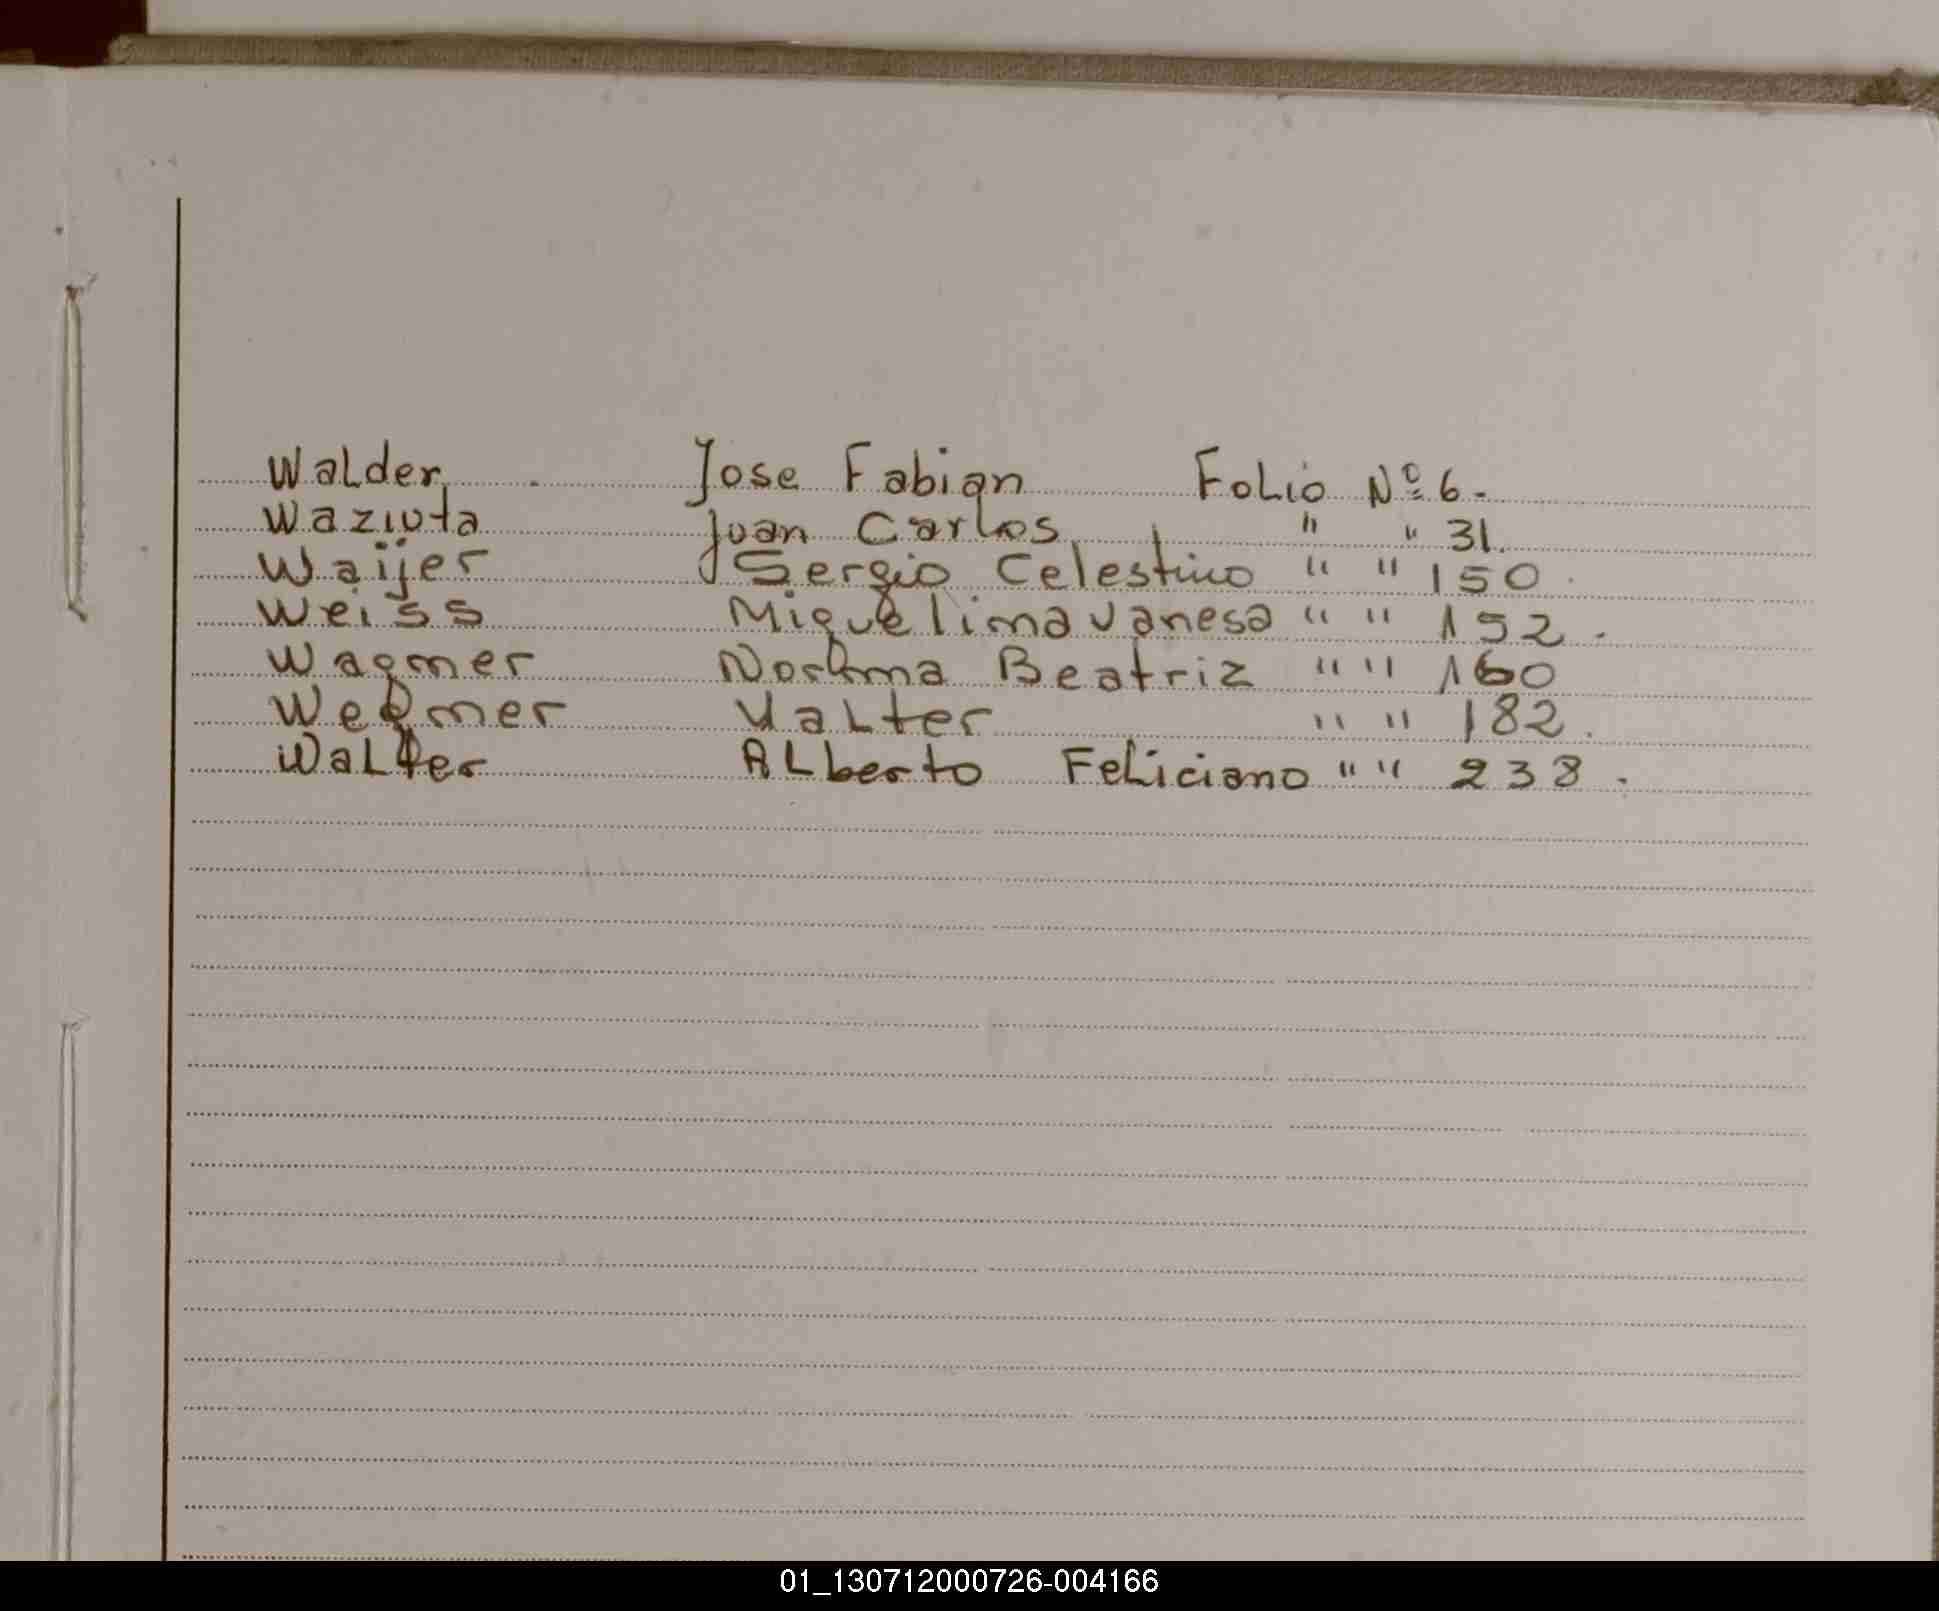 Walder Jose Fabian Folio Nº 6.
Waziuta Juan Carlos " " 31.
Waijer Sergio Celestino " " 150.
Weiss Miguelima Vanesa " " 152.
Wagmer Norma Beatriz " " 160
Wegmer Valter " " 182.
Walter Alberto Feliciano " " 238.
01_130712000726-004166